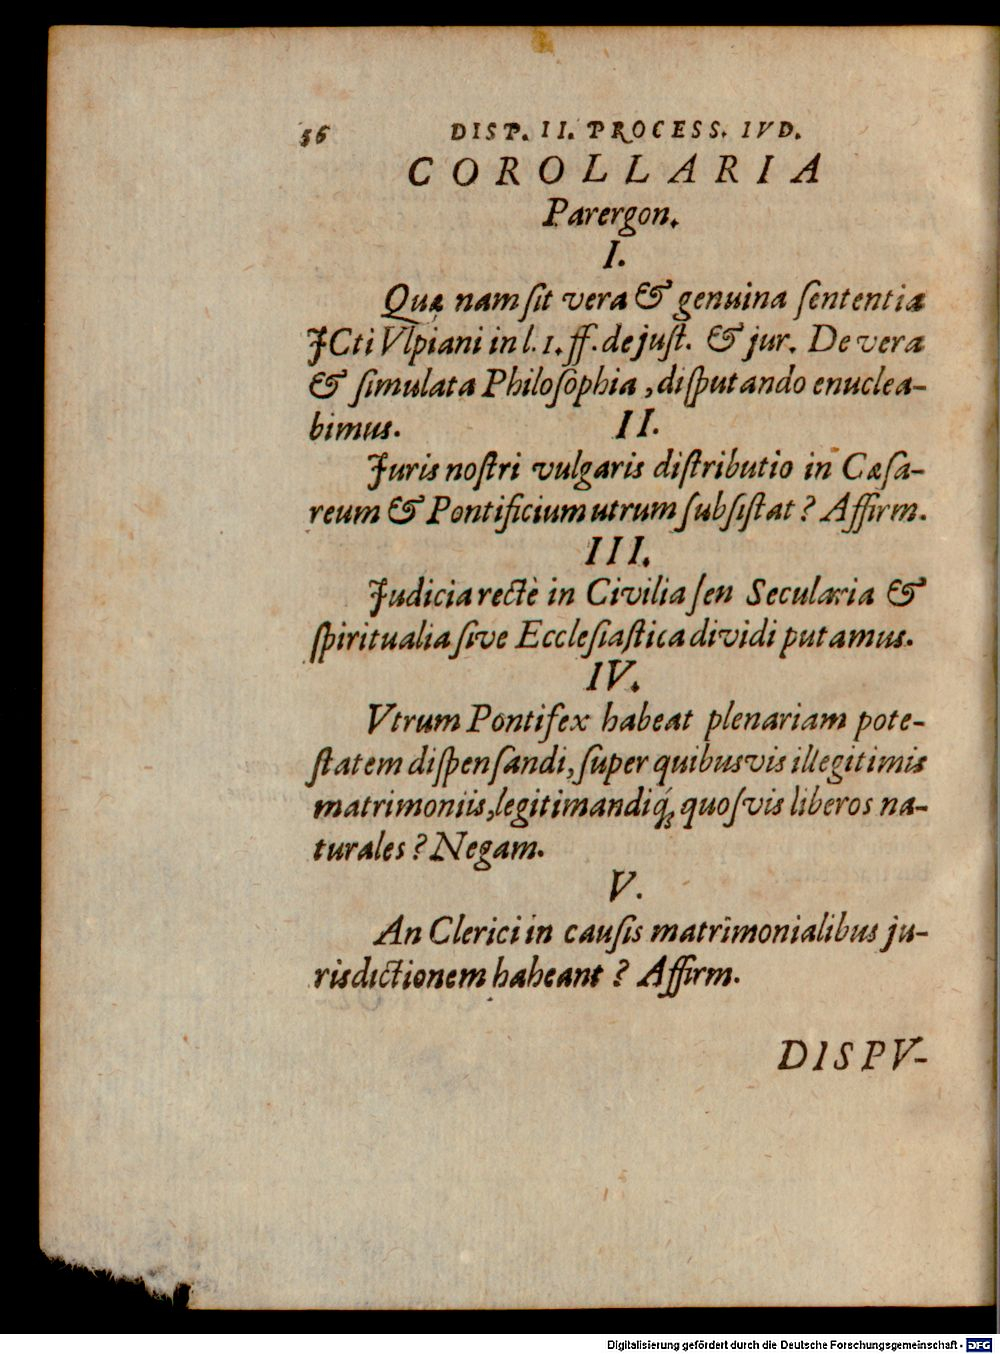 56 DISP. II. PROCESS. IVD.
COROLLARIA
Parergon.
I.
Quæ nam ſit vera & genuina ſententia
JCti Vlpiani in l. 1. ff. de juſt. & jur. De vera
& ſimulata Philoſophia, diſputando enuclea-
bimus. II.
Juris noſtri vulgaris diſtributio in Cæſa-
reum & Pontificium utrum ſubſiſtat? Affirm.
III.
Judicia rectè in Civilia ſen Secularia &
ſpiritualia ſive Eccleſiaſtica dividi putamus.
IV.
Vtrum Pontifex habeat plenariam pote-
ſtatem diſpenſandi, ſuper quibusvis illegitimis
matrimoniis, legitimandiq́; quoſvis liberos na-
turales? Negam.
V.
An Clerici in cauſis matrimonialibus ju-
risdictionem habeant? Affirm.
DISPV-
Digitalisierung gefördert durch die Deutsche Forschungsgemeinschaft - DFG